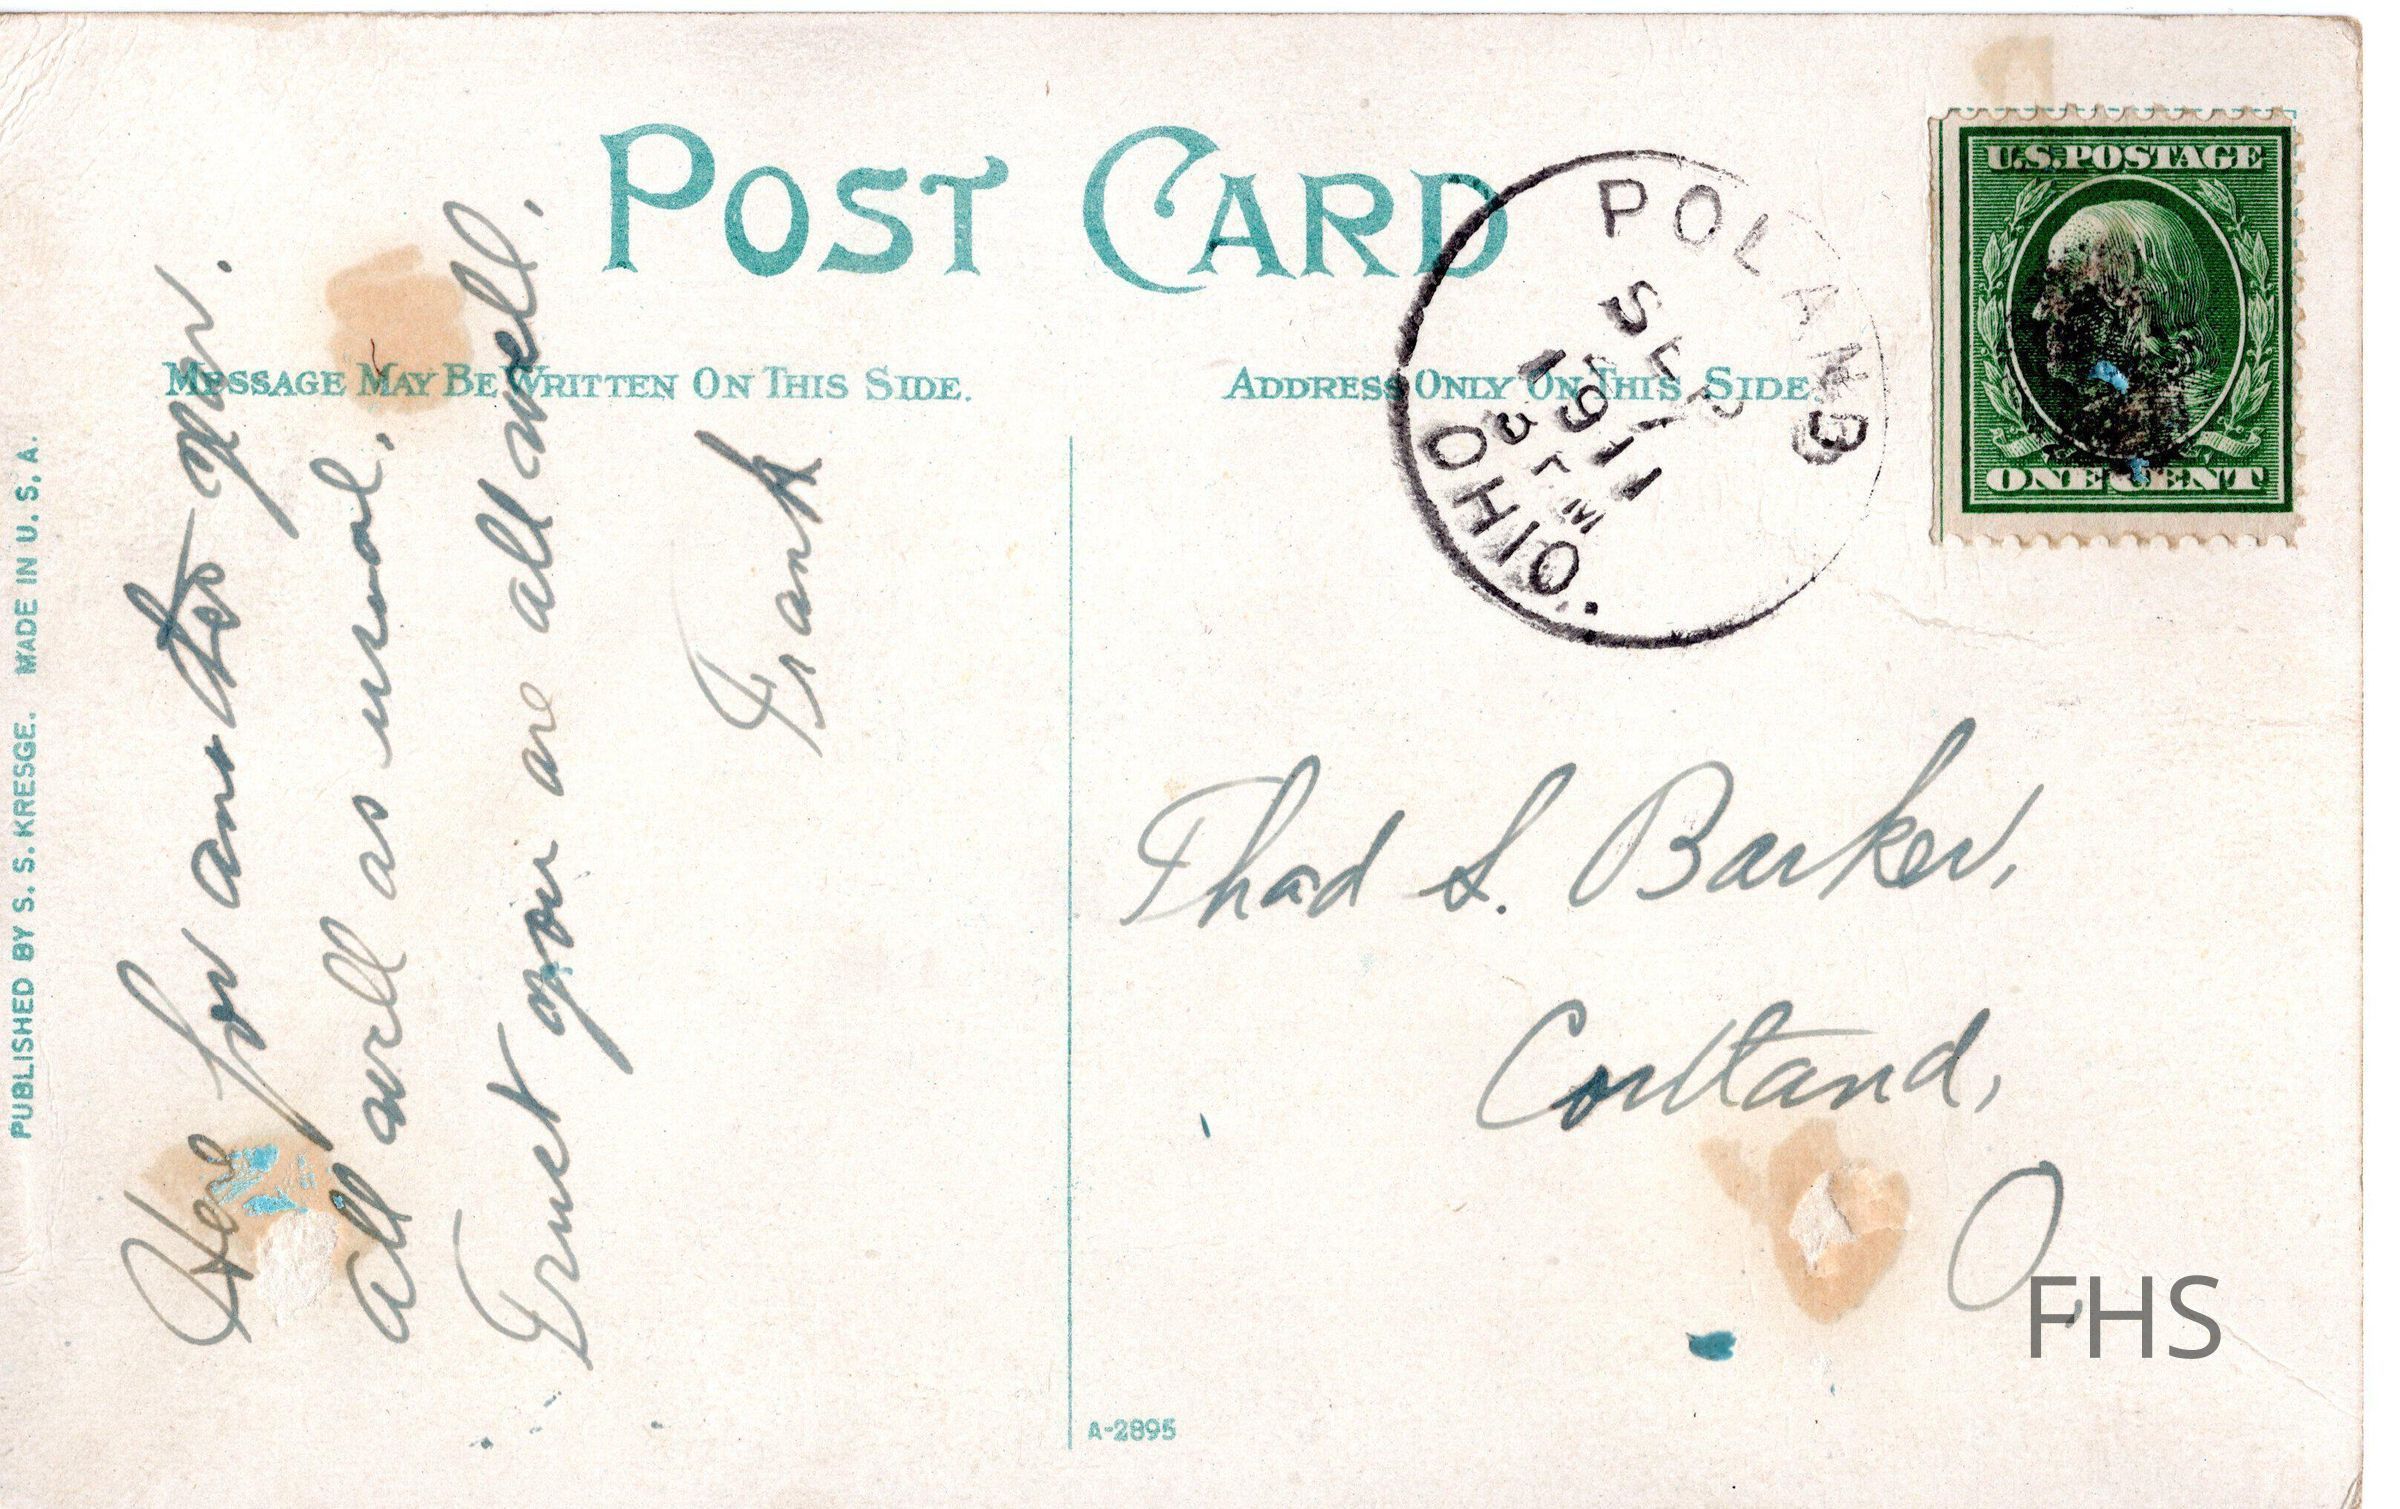 POST CARD
MESSAGE MAY BE WRITTEN ON THIS SIDE.
ADDRESS ONLY ON THIS SIDE.
PUBLISHED BY S. S. KRESGE. MADE IN U. S. A.
Here for another yr.
all well as usual.
Trust you are all well.
Frank
POLAND
SEP
1911
M
OHIO.
U.S. POSTAGE
ONE CENT
Thad S. Barker,
Cortland,
O.
A-2895
FHS